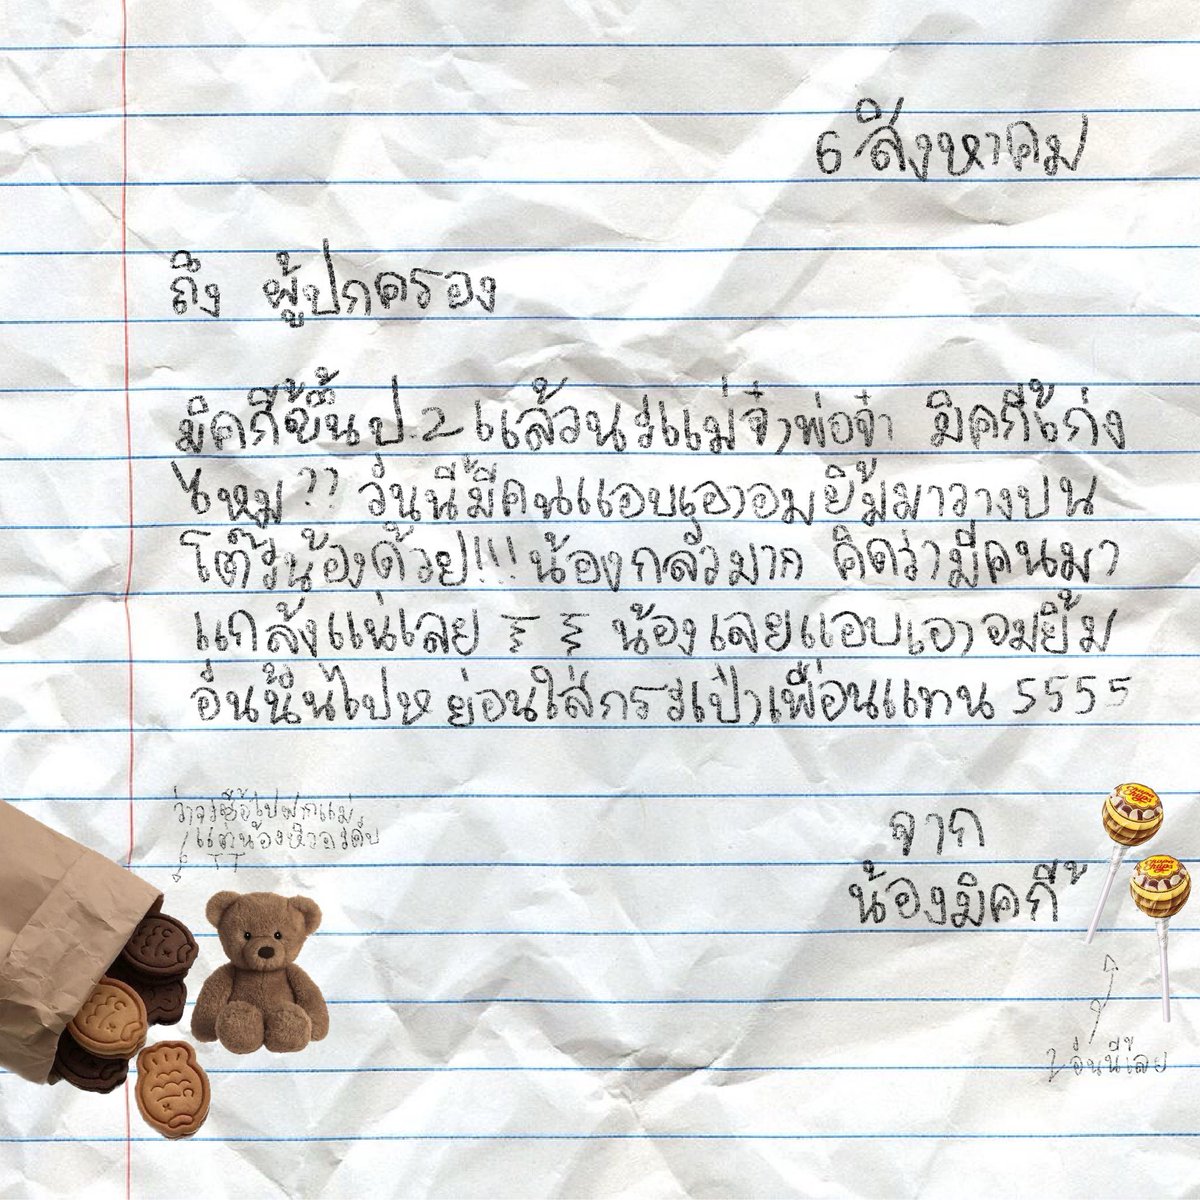 6 สิงหาคม
ถึง ผู้ปกครอง
มิคกี้ขึ้นป.2แล้วนะแม่จ๋าพ่อจ๋า มิคกี้เก่ง
ไหม?? วันนี้มีคนแอบเอาอมยิ้มมาวางบน
โต๊ะน้องด้วย!!! น้องกลัวมาก คิดว่ามีคนมา
แกล้งแน่เลย น้องเลยแอบเอาอมยิ้ม
อันนั้นไปหย่อนใส่กระเป๋าเพื่อนแทน 5555
ว่าจะซื้อไปฝากแม่
แต่น้องหิวอะคับ
TT
จาก
น้องมิคกี้
Chupa Chups
Chupa Chups
2 อันนี้เลย